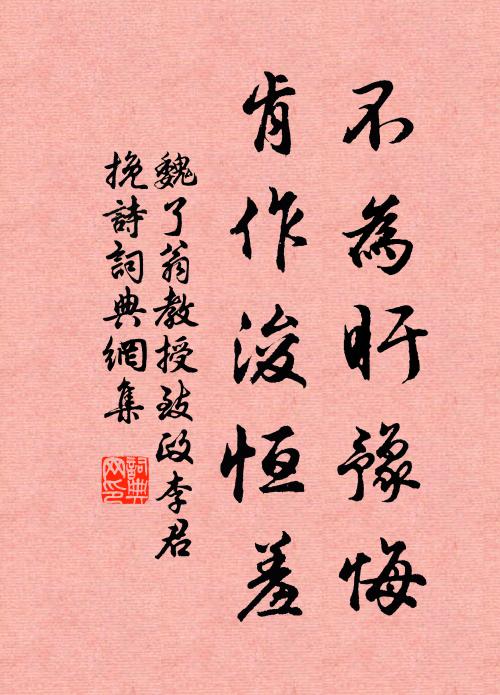 不為盱豫悔
肯作浚恒羞
魏了翁教授致政李君
挽詩詞典網集
詞典網印